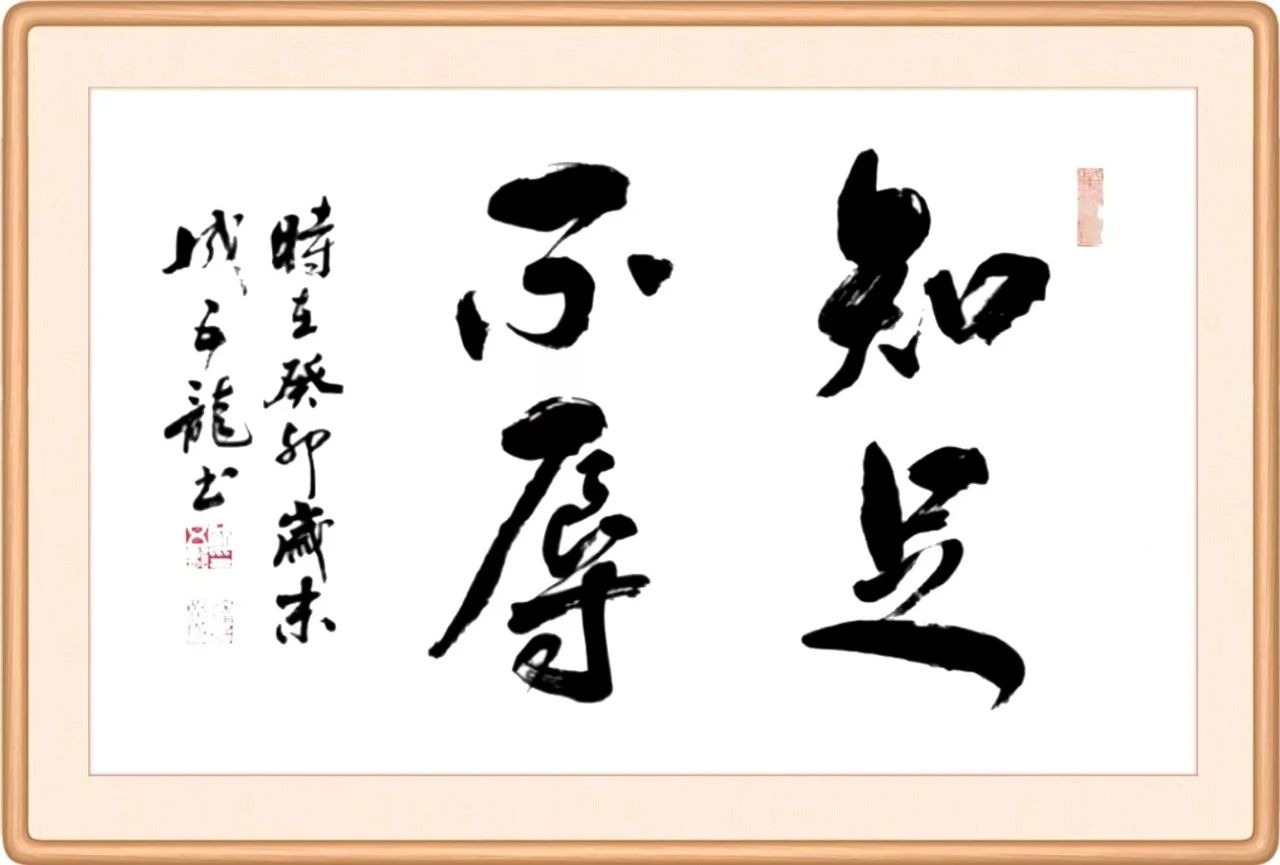 知足
不辱
時在癸卯歲末
成五龍书